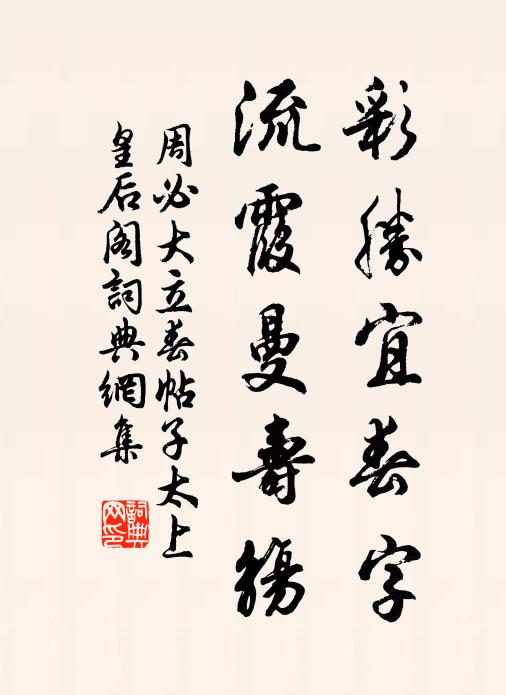 彩勝宜春字
流霞曼壽觴
周必大立春帖子太上
皇后阁詞典網集
詞典网印